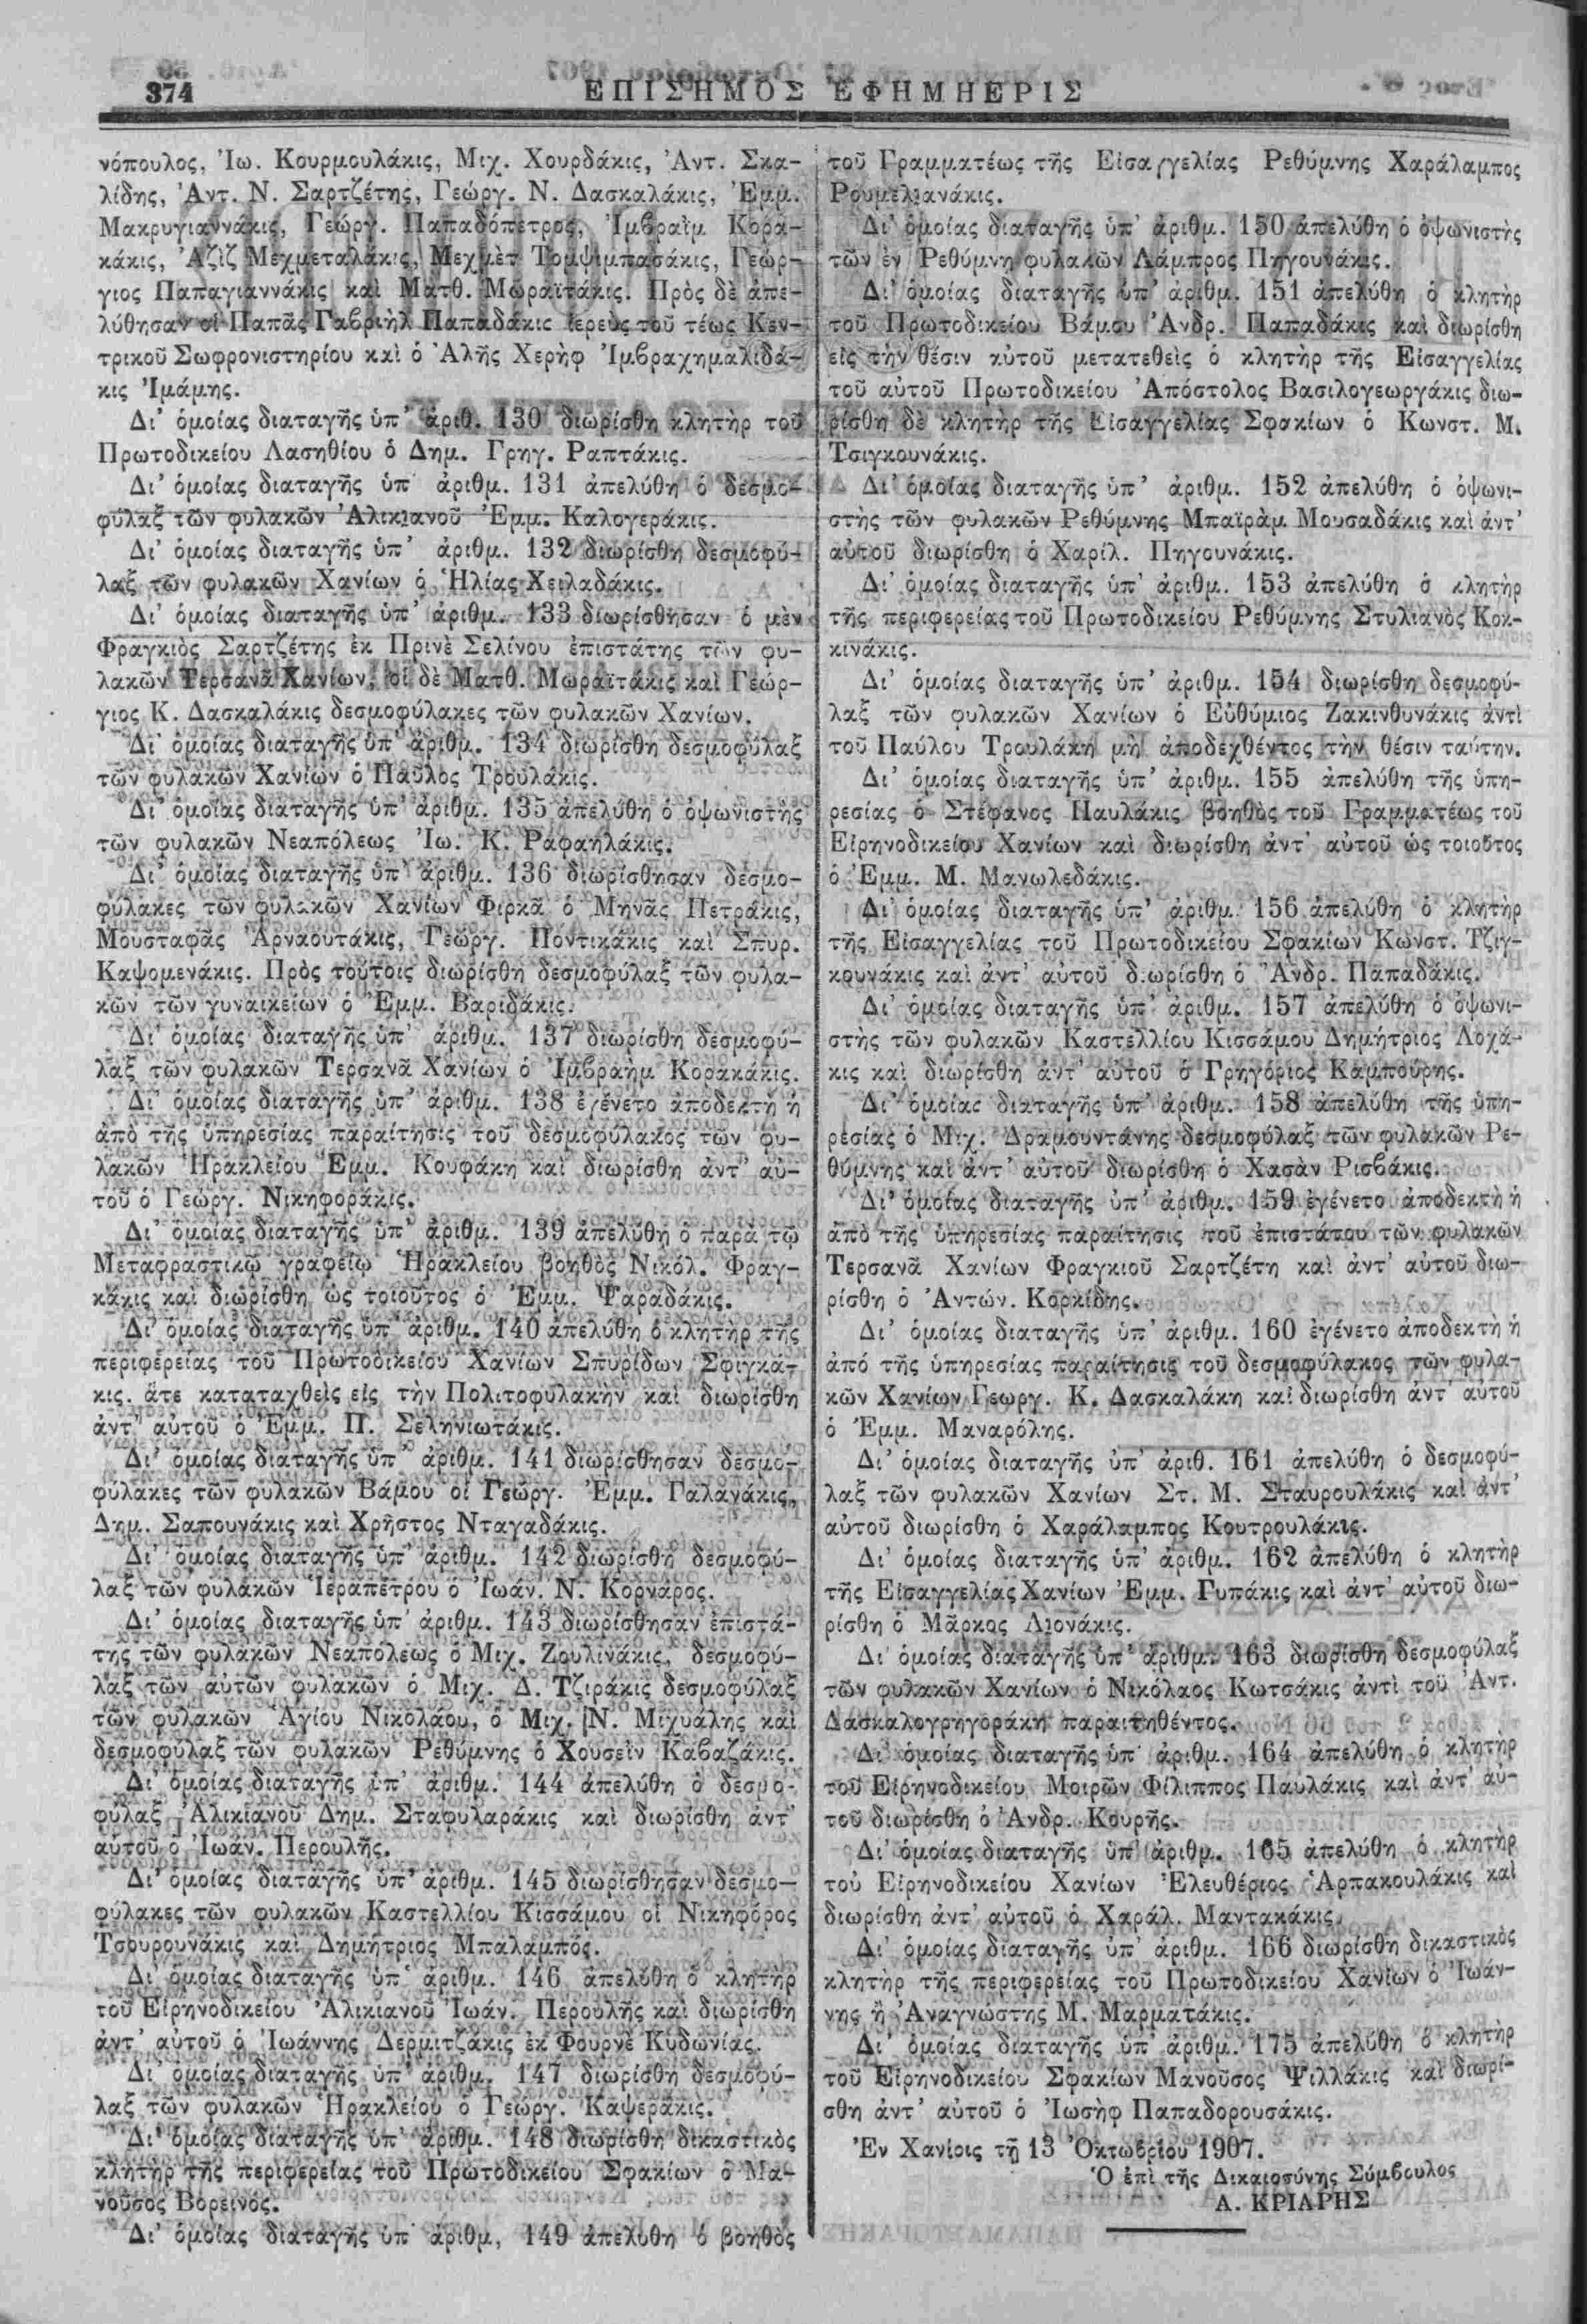 374
ΕΠΙΣΗΜΟΣ ΕΦΗΜΗΕΡΙΣ
νόπουλος, Ἰω. Κουρμουλάκις, Μιχ. Χουρδάκις, Ἀντ. Σκα-
λίδης, Ἀντ. Ν. Σαρτζέτης, Γεώργ. Ν. Δασκαλάκις, Ἐμμ.
Μακρυγιαννάκις, Γεώργ. Παπαδόπετρος, Ἰμβραῒμ Κορα-
κάκις, Ἀζὶζ Μεχμεταλάκις, Μεχμὲτ Τομψιμπασάκις, Γεώρ-
γιος Παπαγιαννάκις καὶ Ματθ. Μωραϊτάκις. Πρὸς δὲ ἀπε-
λύθησαν οἱ Παπᾶς Γαβριὴλ Παπαδάκις ἱερεὺς τοῦ τέως Κεν-
τρικοῦ Σωφρονιστηρίου καὶ ὁ Ἀλῆς Χερὴφ Ἰμβραχημαλιδά-
κις Ἰμάμης.
Δι' ὁμοίας διαταγῆς ὑπ' ἀριθ. 130 διωρίσθη κλητὴρ τοῦ
Πρωτοδικείου Λασηθίου ὁ Δημ. Γρηγ. Ραπτάκις.
Δι' ὁμοίας διαταγῆς ὑπ' ἀριθμ. 131 ἀπελύθη ὁ δεσμο-
φύλαξ τῶν φυλακῶν Ἀλικιανοῦ Ἐμμ. Καλογεράκις.
Δι' ὁμοίας διαταγῆς ὑπ' ἀριθμ. 132 διωρίσθη δεσμοφύ-
λαξ τῶν φυλακῶν Χανίων ὁ Ἠλίας Χειλαδάκις.
Δι' ὁμοίας διαταγῆς ὑπ' ἀριθμ. 133 διωρίσθησαν ὁ μὲν
Φραγκιὸς Σαρτζέτης ἐκ Πρινὲ Σελίνου ἐπιστάτης τῶν φυ-
λακῶν Τερσανᾶ Χανίων, οἱ δὲ Ματθ. Μωραϊτάκις καὶ Γεώρ-
γιος Κ. Δασκαλάκις δεσμοφύλακες τῶν φυλακῶν Χανίων.
Δι' ὁμοίας διαταγῆς ὑπ' ἀριθμ. 134 διωρίσθη δεσμοφύλαξ
τῶν φυλακῶν Χανίων ὁ Παῦλος Τρουλάκις.
Δι' ὁμοίας διαταγῆς ὑπ' ἀριθμ. 135 ἀπελύθη ὁ ὀψωνιστὴς
τῶν φυλακῶν Νεαπόλεως Ἰω. Κ. Ραφαηλάκις.
Δι' ὁμοίας διαταγῆς ὑπ' ἀριθμ. 136 διωρίσθησαν δεσμο-
φύλακες τῶν φυλακῶν Χανίων Φιρκᾶ ὁ Μηνᾶς Πετράκις,
Μουσταφᾶς Ἀρναουτάκις, Γεώργ. Ποντικάκις καὶ Σπυρ.
Καψομενάκις. Πρὸς τούτοις διωρίσθη δεσμοφύλαξ τῶν φυλα-
κῶν τῶν γυναικείων ὁ Ἐμμ. Βαριδάκις.
Δι' ὁμοίας διαταγῆς ὑπ' ἀριθμ. 137 διωρίσθη δεσμοφύ-
λαξ τῶν φυλακῶν Τερσανᾶ Χανίων ὁ Ἰμβραὴμ Κορακάκις.
Δι' ὁμοίας διαταγῆς ὑπ' ἀριθμ. 138 ἐγένετο ἀποδεκτὴ ἡ
ἀπὸ τῆς ὑπηρεσίας παραίτησις τοῦ δεσμοφύλακος τῶν φυ-
λακῶν Ἡρακλείου Ἐμμ. Κουφάκη καὶ διωρίσθη ἀντ' αὐ-
τοῦ ὁ Γεώργ. Νικηφοράκις.
Δι' ὁμοίας διαταγῆς ὑπ' ἀριθμ. 139 ἀπελύθη ὁ παρὰ τῷ
Μεταφραστικῷ γραφείῳ Ἡρακλείου βοηθὸς Νικόλ. Φραγ-
κάκις καὶ διωρίσθη ὡς τοιοῦτος ὁ Ἐμμ. Ψαραδάκις.
Δι' ὁμοίας διαταγῆς ὑπ' ἀριθμ. 140 ἀπελύθη ὁ κλητὴρ τῆς
περιφερείας τοῦ Πρωτοδικείου Χανίων Σπυρίδων Σφιγκά-
κις, ἅτε καταταχθεὶς εἰς τὴν Πολιτοφυλακὴν καὶ διωρίσθη
ἀντ' αὐτοῦ ὁ Ἐμμ. Π. Σεληνιωτάκις.
Δι' ὁμοίας διαταγῆς ὑπ' ἀριθμ. 141 διωρίσθησαν δεσμο-
φύλακες τῶν φυλακῶν Βάμου οἱ Γεώργ. Ἐμμ. Γαλανάκις,
Δημ. Σαπουνάκις καὶ Χρῆστος Νταγαδάκις.
Δι' ὁμοίας διαταγῆς ὑπ' ἀριθμ. 142 διωρίσθη δεσμοφύ-
λαξ τῶν φυλακῶν Ἱεραπέτρου ὁ Ἰωάν. Ν. Κορνάρος.
Δι' ὁμοίας διαταγῆς ὑπ' ἀριθμ. 143 διωρίσθησαν ἐπιστά-
της τῶν φυλακῶν Νεαπόλεως ὁ Μιχ. Ζουλινάκις, δεσμοφύ-
λαξ τῶν αὐτῶν φυλακῶν ὁ Μιχ. Δ. Τζιράκις δεσμοφύλαξ
τῶν φυλακῶν Ἁγίου Νικολάου, ὁ Μιχ. Ν. Μιχυάλης καὶ
δεσμοφύλαξ τῶν φυλακῶν Ρεθύμνης ὁ Χουσεῒν Καβαζάκις.
Δι' ὁμοίας διαταγῆς ὑπ' ἀριθμ. 144 ἀπελύθη ὁ δεσμο-
φύλαξ Ἀλικιανοῦ Δημ. Σταφυλαράκις καὶ διωρίσθη ἀντ'
αὐτοῦ ὁ Ἰωάν. Περουλῆς.
Δι' ὁμοίας διαταγῆς ὑπ' ἀριθμ. 145 διωρίσθησαν δεσμο-
φύλακες τῶν φυλακῶν Καστελλίου Κισσάμου οἱ Νικηφόρος
Τσουρουνάκις καὶ Δημήτριος Μπαλαμπός.
Δι' ὁμοίας διαταγῆς ὑπ' ἀριθμ. 146 ἀπελύθη ὁ κλητὴρ
τοῦ Εἰρηνοδικείου Ἀλικιανοῦ Ἰωάν. Περουλῆς καὶ διωρίσθη
ἀντ' αὐτοῦ ὁ Ἰωάννης Δερμιτζάκις ἐκ Φουρνὲ Κυδωνίας.
Δι' ὁμοίας διαταγῆς ὑπ' ἀριθμ. 147 διωρίσθη δεσμοφύ-
λαξ τῶν φυλακῶν Ἡρακλείου ὁ Γεώργ. Καψεράκις.
Δι' ὁμοίας διαταγῆς ὑπ' ἀριθμ. 148 διωρίσθη δικαστικὸς
κλητὴρ τῆς περιφερείας τοῦ Πρωτοδικείου Σφακίων ὁ Μα-
νοῦσος Βορεινός.
Δι' ὁμοίας διαταγῆς ὑπ' ἀριθμ, 149 ἀπελύθη ὁ βοηθὸς
τοῦ Γραμματέως τῆς Εἰσαγγελίας Ρεθύμνης Χαράλαμπος
Ρουμελιανάκις.
Δι' ὁμοίας διαταγῆς ὑπ' ἀριθμ. 150 ἀπελύθη ὁ ὀψωνιστὴς
τῶν ἐν Ρεθύμνῃ φυλακῶν Λάμπρος Πηγουνάκις.
Δι' ὁμοίας διαταγῆς ὑπ' ἀριθμ. 151 ἀπελύθη ὁ κλητὴρ
τοῦ Πρωτοδικείου Βάμου Ἀνδρ. Παπαδάκις καὶ διωρίσθη
εἰς τὴν θέσιν αὐτοῦ μετατεθεὶς ὁ κλητὴρ τῆς Εἰσαγγελίας
τοῦ αὐτοῦ Πρωτοδικείου Ἀπόστολος Βασιλογεωργάκις διω-
ρίσθη δὲ κλητὴρ τῆς Εἰσαγγελίας Σφακίων ὁ Κωνστ. Μ.
Τσιγκουνάκις.
Δι' ὁμοίας διαταγῆς ὑπ' ἀριθμ. 152 ἀπελύθη ὁ ὀψωνι-
στὴς τῶν φυλακῶν Ρεθύμνης Μπαϊρὰμ Μουσαδάκις καὶ ἀντ'
αὐτοῦ διωρίσθη ὁ Χαρίλ. Πηγουνάκις.
Δι' ὁμοίας διαταγῆς ὑπ' ἀριθμ. 153 ἀπελύθη ὁ κλητὴρ
τῆς περιφερείας τοῦ Πρωτοδικείου Ρεθύμνης Στυλιανὸς Κοκ-
κινάκις.
Δι' ὁμοίας διαταγῆς ὑπ' ἀριθμ. 154 διωρίσθη δεσμοφύ-
λαξ τῶν φυλακῶν Χανίων ὁ Εὐθύμιος Ζακινθυνάκις ἀντὶ
τοῦ Παύλου Τρουλάκη μὴ ἀποδεχθέντος τὴν θέσιν ταύτην.
Δι' ὁμοίας διαταγῆς ὑπ' ἀριθμ. 155 ἀπελύθη τῆς ὑπη-
ρεσίας ὁ Στέφανος Παυλάκις βοηθὸς τοῦ Γραμματέως τοῦ
Εἰρηνοδικείου Χανίων καὶ διωρίσθη ἀντ' αὐτοῦ ὡς τοιοῦτος
ὁ Ἐμμ. Μ. Μανωλεδάκις.
Δι' ὁμοίας διαταγῆς ὑπ' ἀριθμ. 156 ἀπελύθη ὁ κλητὴρ
τῆς Εἰσαγγελίας τοῦ Πρωτοδικείου Σφακίων Κωνστ. Τζιγ-
κουνάκις καὶ ἀντ' αὐτοῦ διωρίσθη ὁ Ἀνδρ. Παπαδάκις.
Δι' ὁμοίας διαταγῆς ὑπ' ἀριθμ. 157 ἀπελύθη ὁ ὀψωνι-
στὴς τῶν φυλακῶν Καστελλίου Κισσάμου Δημήτριος Λοχά-
κις καὶ διωρίσθη ἀντ' αὐτοῦ ὁ Γρηγόριος Καμπούρης.
Δι' ὁμοίας διαταγῆς ὑπ' ἀριθμ. 158 ἀπελύθη τῆς ὑπη-
ρεσίας ὁ Μιχ. Δραμουντάνης δεσμοφύλαξ τῶν φυλακῶν Ρε-
θύμνης καὶ ἀντ' αὐτοῦ διωρίσθη ὁ Χασὰν Ρισβάκις.
Δι' ὁμοίας διαταγῆς ὑπ' ἀριθμ. 159 ἐγένετο ἀποδεκτὴ ἡ
ἀπὸ τῆς ὑπηρεσίας παραίτησις τοῦ ἐπιστάτου τῶν φυλακῶν
Τερσανᾶ Χανίων Φραγκιοῦ Σαρτζέτη καὶ ἀντ' αὐτοῦ διω-
ρίσθη ὁ Ἀντών. Κορκίδης.
Δι' ὁμοίας διαταγῆς ὑπ' ἀριθμ. 160 ἐγένετο ἀποδεκτὴ ἡ
ἀπό τῆς ὑπηρεσίας παραίτησις τοῦ δεσμοφύλακος τῶν φυλα-
κῶν Χανίων Γεωργ. Κ. Δασκαλάκη καὶ διωρίσθη ἀντ' αὐτοῦ
ὁ Ἐμμ. Μαναρόλης.
Δι' ὁμοίας διαταγῆς ὑπ' ἀριθ. 161 ἀπελύθη ὁ δεσμοφύ-
λαξ τῶν φυλακῶν Χανίων Στ. Μ. Σταυρουλάκις καὶ ἀντ'
αὐτοῦ διωρίσθη ὁ Χαράλαμπος Κουτρουλάκις.
Δι' ὁμοίας διαταγῆς ὑπ' ἀριθμ. 162 ἀπελύθη ὁ κλητὴρ
τῆς Εἰσαγγελίας Χανίων Ἐμμ. Γυπάκις καὶ ἀντ' αὐτοῦ διω-
ρίσθη ὁ Μᾶρκος Λιονάκις.
Δι' ὁμοίας διαταγῆς ὑπ' ἀριθμ. 163 διωρίσθη δεσμοφύλαξ
τῶν φυλακῶν Χανίων ὁ Νικόλαος Κωτσάκις ἀντὶ τοῦ Ἀντ.
Δασκαλογρηγοράκη παραιτηθέντος.
Δι' ὁμοίας διαταγῆς ὑπ' ἀριθμ. 164 ἀπελύθη ὁ κλητὴρ
τοῦ Εἰρηνοδικείου Μοιρῶν Φίλιππος Παυλάκις καὶ ἀντ' αὐ-
τοῦ διωρίσθη ὁ Ἀνδρ. Κουρῆς.
Δι' ὁμοίας διαταγῆς ὑπ' ἀριθμ. 165 ἀπελύθη ὁ κλητὴρ
τοῦ Εἰρηνοδικείου Χανίων Ἐλευθέριος Ἁρπακουλάκις καὶ
διωρίσθη ἀντ' αὐτοῦ ὁ Χαράλ. Μαντακάκις.
Δι' ὁμοίας διαταγῆς ὑπ' ἀριθμ. 166 διωρίσθη δικαστικὸς
κλητὴρ τῆς περιφερείας τοῦ Πρωτοδικείου Χανίων ὁ Ἰωάν-
νης ἢ Ἀναγνώστης Μ. Μαρματάκις.
Δι' ὁμοίας διαταγῆς ὑπ' ἀριθμ. 175 ἀπελύθη ὁ κλητὴρ
τοῦ Εἰρηνοδικείου Σφακίων Μανοῦσος Ψιλλάκις καὶ διωρί-
σθη ἀντ' αὐτοῦ ὁ Ἰωσὴφ Παπαδορουσάκις.
Ἐν Χανίοις τῇ 13 Ὀκτωβρίου 1907.
Ὁ ἐπὶ τῆς Δικαιοσύνης Σύμβουλος
Α. ΚΡΙΑΡΗΣ